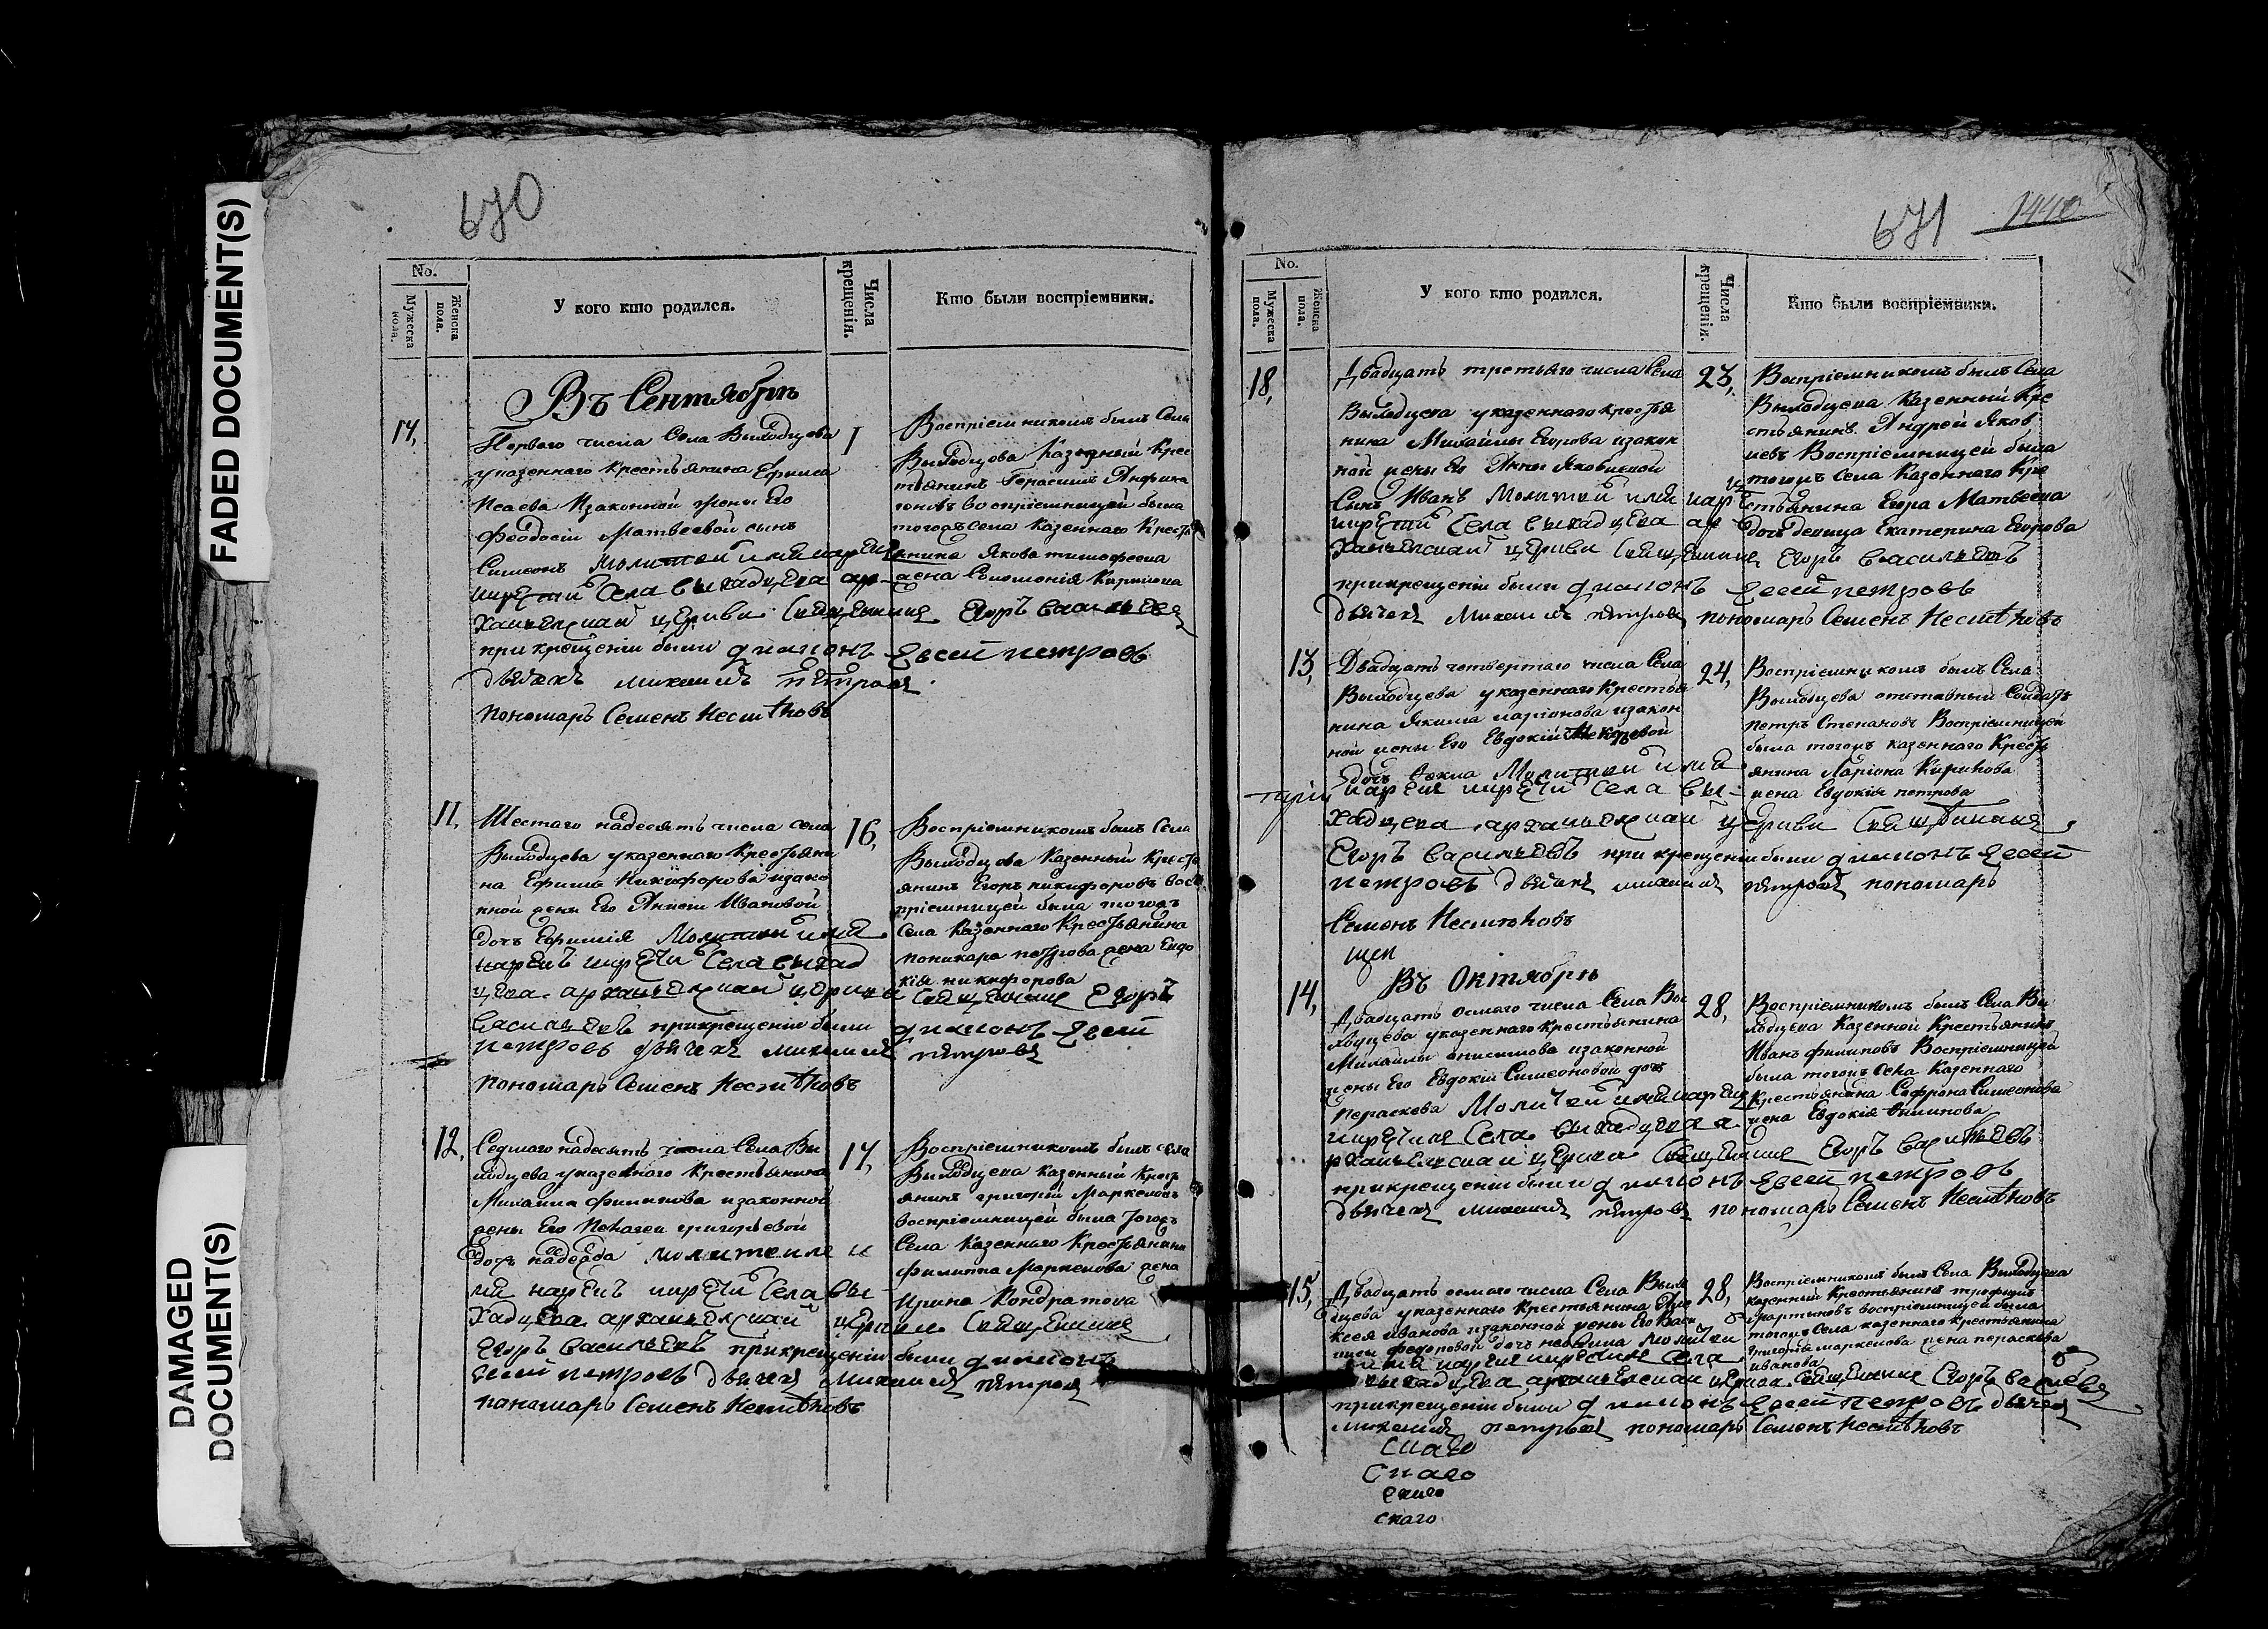 FADED DOCUMENT(S)
DAMAGED
DOCUMENT(S)
670
No.
Мужеска пола.
Женска пола.
У кого кто родился.
Числа крещенія.
Кто были воспріемники.
Въ Сентябрѣ
17,
Перваго числа Села Выходцева
у казеннаго Крестьянина Ефима
Исаева Изаконной жены Его
Феодосіи Матвеевой сынъ
Симеонъ Молитвой имя нарекъ
икрестилъ Села Выхадцева ар-
ханьелскай церкви Священникъ Егоръ Васильевъ
при крещеніи были диаконъ Евсей петровъ
дьячекъ михаилъ петровъ
пономарь Семенъ Несмѣяновъ
1
Воспріемникомъ былъ Села
Выходцова Казенный Крес
тьянинъ Герасимъ
воспріемницей была
тогожъ села Казеннаго Кресть
янина Якова тимофеева
жена Соломонія Карпова
11,
Шестаго надесять числа села
Выходцева у казеннаго Крестьяни
на Ефима Никифорова изако
нной жены Его Анисіи Ивановой
дочь Евфимія Молитвой имя
нарекъ икрести Села Выхад
цева арханьелскай церкви Священникъ Егоръ
Васильевъ прикрещеніи были диаконъ Евсей
петровъ дьячекъ михаилъ петровъ
пономарь Семенъ Несмѣяновъ
16,
Воспріемникомъ былъ Села
Выходцова Казенный Кресть
янинъ Егоръ никифоровъ вос
пріемницей была тогожъ
Села Казеннаго Крестьянина
поликарпа петрова жена Евдо
кія никифорова
12,
Седмаго надесять числа Села Вы
ходцева у казеннаго Крестьянина
Михаила филипова изаконной
жены Его Пелагеи григорьевой
дочь надежда молитвою и
мя нарекъ икрести Села Вы-
хадцева арханьелскай церкви Священникъ
Егоръ Васильевъ прикрещеніи были диаконъ
Евсей петровъ дьячекъ михаилъ петровъ
пономарь Семенъ Несмѣяновъ
17,
Воспріемникомъ былъ села
Выходцева казенный Кресть
янинъ григорій Маркеловъ
воспріемницей была тогожъ
Села Казеннаго Крестьянина
филиппа Маркелова жена
Ирина Кондратова
671
1440
No.
Мужеска пола.
Женска пола.
У кого кто родился.
Числа крещенія.
Кто были воспріемники.
18,
Двадцать третьяго числа Села
Выходцева у казеннаго крестья
нина Михайлы Егорова изакон
ной жены Его Анны Яковлевой
Сынъ Иванъ Молитвой имя нар
икрестилъ Села Выхадцева ар
ханьелскай церкви Священникъ Егоръ Васильевъ
прикрещеніи были диаконъ Евсей петровъ
дьячекъ Михаилъ петровъ пономарь Семенъ Несмѣяновъ
23,
Воспріемникомъ былъ Села
Выходцева Казенный Кре
стьянинъ Андрей Яков
левъ Воспріемницей была
тогожъ Села Казеннаго Кре
стьянина Егора Матвеева
дочь девица Екатерина Егорова
13,
Двадцать четвертаго числа Села
Выходцева у казеннаго Крестья
нина Якима ларіонова изакон
ной жены Его Евдокіи
дочь Молитвой имя
нарекъ икрести Села Вы-
хадцева арханьелскай церкви Священникъ
Егоръ Васильевъ при крещеніи были диаконъ Евсей
петровъ дьячекъ михаилъ петровъ пономарь
Семенъ Несмѣяновъ
24,
Воспріемникомъ былъ Села
Выходцева отставный Солдатъ
петръ Степановъ Воспріемницей
была тогожъ казеннаго Кресть
янина Ларіона Кирилова
жена Евдокія петрова
Въ Октябрѣ
14,
Двадцать осмаго числа Села Вы
ходцева у казеннаго крестьянина
Михайлы онисимова изаконной
жены Его Евдокіи Симеоновой дочь
Пераскева Молитвой имя нарекъ
икрести Села Выхадцева а
рханьелскай церкви Священникъ Егоръ Васильевъ
прикрещеніи были диаконъ Евсей петровъ
дьячекъ михаилъ петровъ пономарь Семенъ Несмѣяновъ
28,
Воспріемникомъ былъ Села Вы
ходцева Казенной Крестьянинъ
Иванъ филиповъ Воспріемницей
была тогожъ Села Казеннаго
Крестьянина Софрона Симеонова
жена Евдокія филипова
15,
Двадцать осмаго числа Села Выхо
дцева у казеннаго Крестьянина Але
ксея иванова изаконной жены Его Васи
лисы федоровой дочь молитвой
имя нарекъ икрести Села
Выхадцева арханьелскай церкви Священникъ Егоръ Васильевъ
прикрещеніи были диаконъ Евсей петровъ дьячекъ
михаилъ петровъ пономарь Семенъ Несмѣяновъ
28,
Воспріемникомъ былъ Села Выходцева
казенный Крестьянинъ трофимъ
мартыновъ воспріемницей была
тогожъ Села казеннаго Крестьянина
григорья маркелова жена пераскева
иванова
скаго
скаго
скаго
скаго